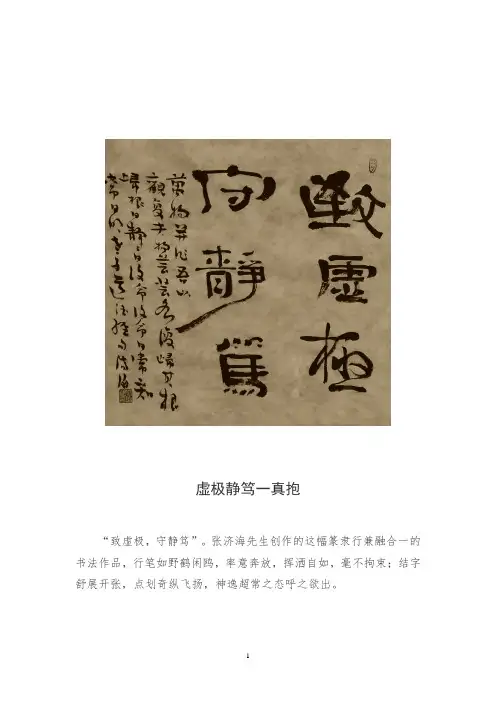 致虛極
守靜篤
萬物并作吾以
觀復夫物芸芸各復歸其根
歸根曰靜靜曰復命復命曰常知
常曰明老子道德經句濟海
虚极静笃一真抱
“致虚极，守静笃”。张济海先生创作的这幅篆隶行兼融合一的
书法作品，行笔如野鹤闲鸥，率意奔放，挥洒自如，毫不拘束；结字
舒展开张，点划奇纵飞扬，神逸超常之态呼之欲出。
1